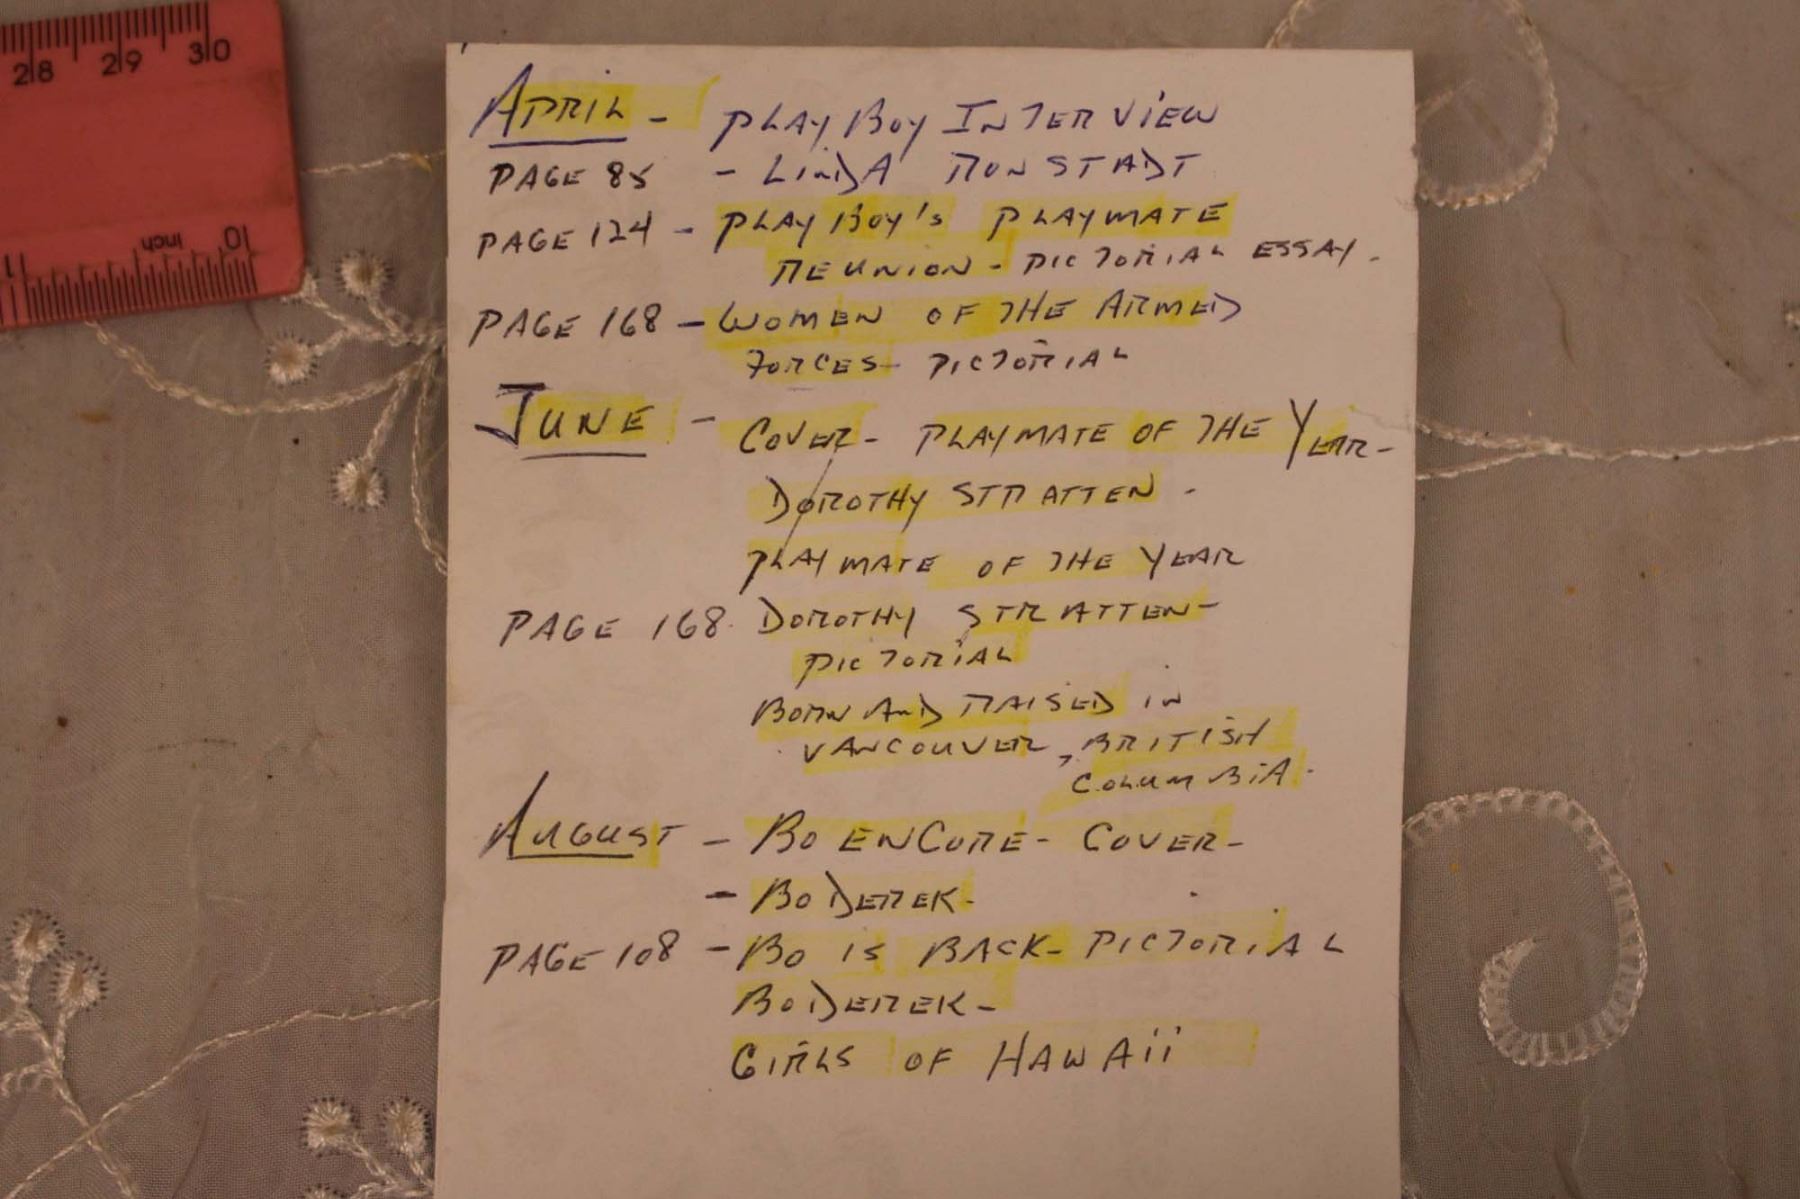 28 29 30
inch 10
11
APRIL - PLAYBOY INTERVIEW
PAGE 85 - LINDA RONSTADT
PAGE 124 - PLAYBOY'S PLAYMATE
REUNION - PICTORIAL ESSAY.
PAGE 168 - WOMEN OF THE ARMED
FORCES - PICTORIAL
JUNE - COVER - PLAYMATE OF THE YEAR -
DOROTHY STRATTEN -
PLAYMATE OF THE YEAR
PAGE 168. DOROTHY STRATTEN -
PICTORIAL
BORN AND RAISED IN
VANCOUVER, BRITISH
COLUMBIA.
AUGUST - BO ENCORE - COVER -
- BO DEREK -
PAGE 108 - BO IS BACK - PICTORIAL
BO DEREK -
GIRLS OF HAWAII